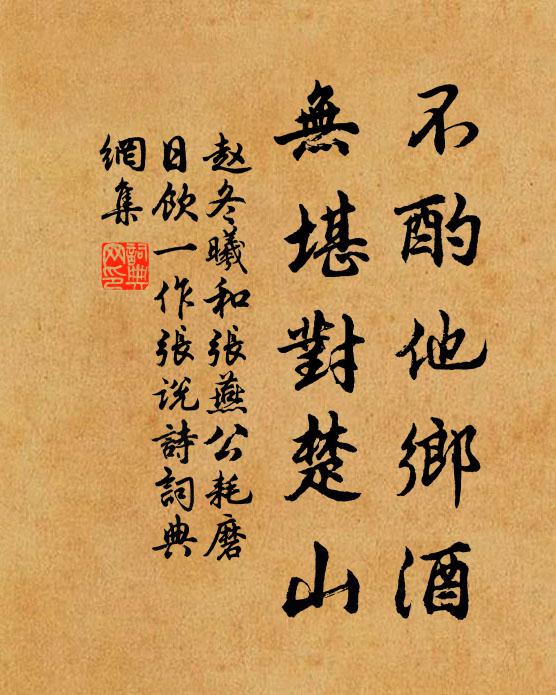 不酌他鄉酒
無堪對楚山
赵冬曦和張燕公耗磨
日飲一作張说詩詞典
網集
詞典網印